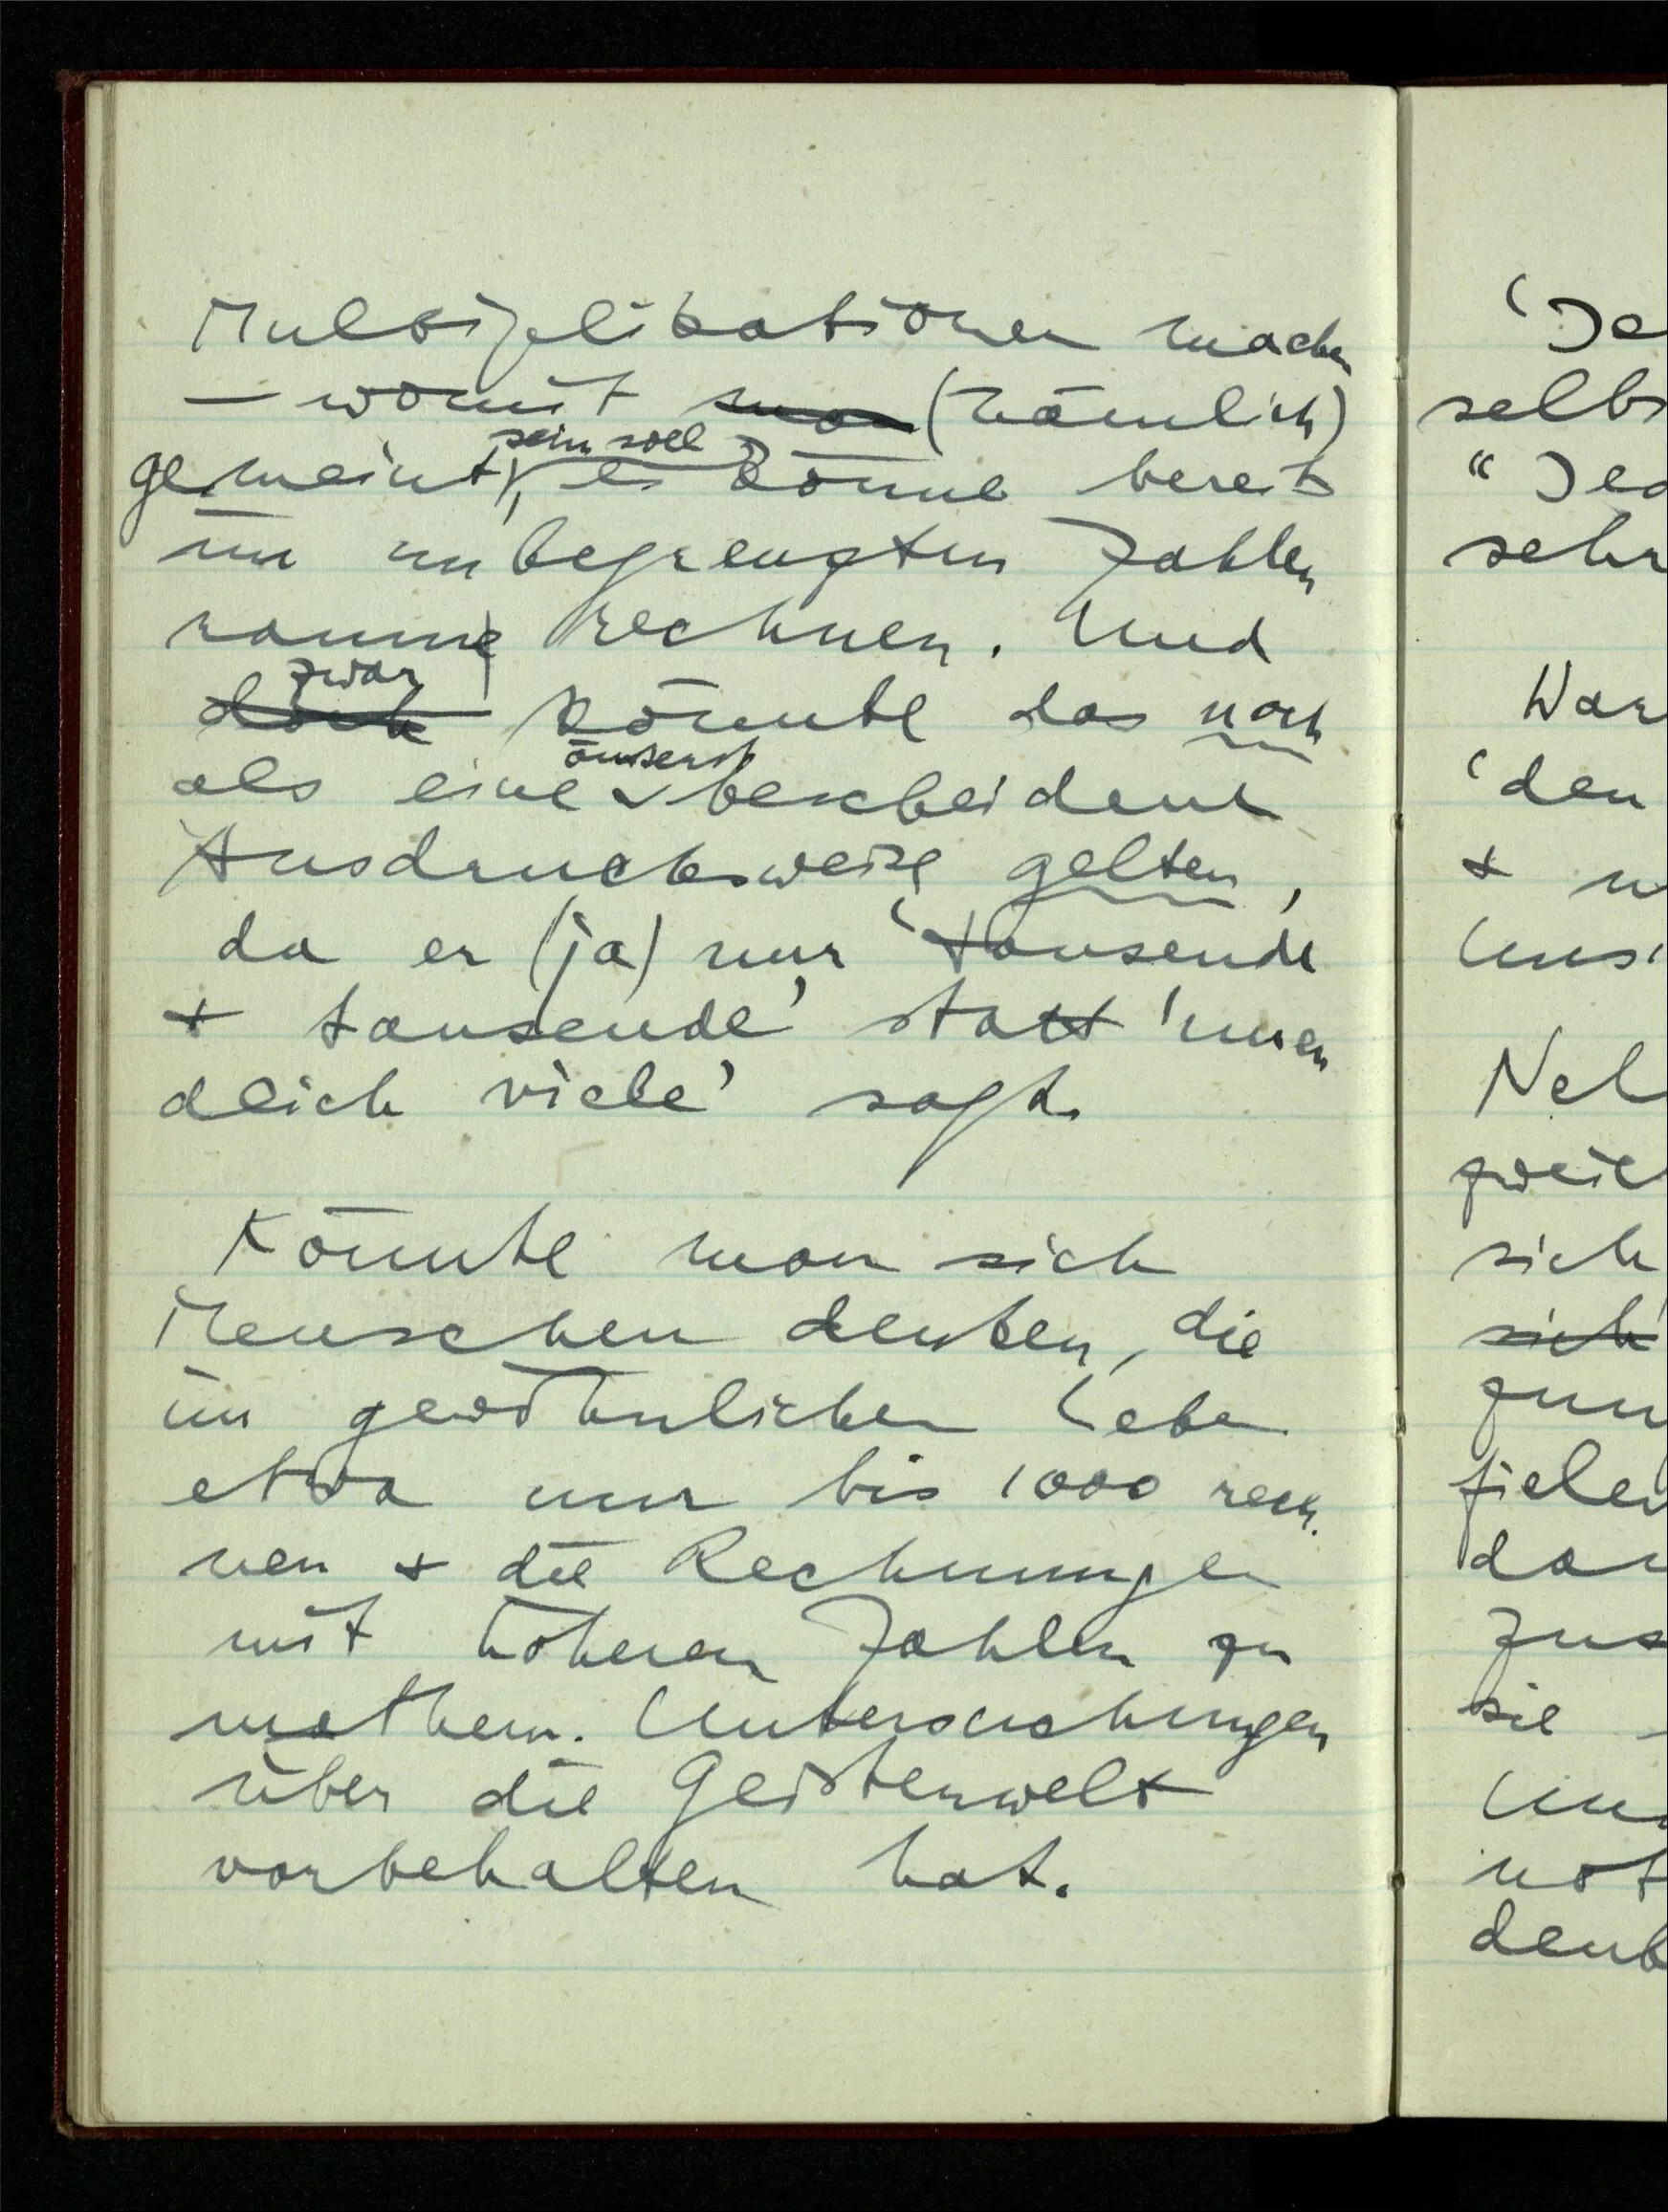 Multiplikationen machen
— womit man (nämlich)
gemeint sein soll, er könne bereits
im unbegrenzten Zahlen
raume rechnen. Und
doch zwar könnte das noch
als eine äusserst bescheidene
Ausdrucksweise gelten,
da er (ja) nur 'tausende
+ tausende' statt 'unen
dlich viele' sagt.
Könnte man sich
Menschen denken, die
im gewöhnlichen Leben
etwa nur bis 1000 rech
nen + die Rechnungen
mit höheren Zahlen zu
mathem. Untersuchungen
über die Geisterwelt
vorbehalten hat.
'Je
selbs
"Jed
sehr
War
'den
+ 
Uns
Nel
sich
sich
fielen
dar
Zus
sie
not
denk